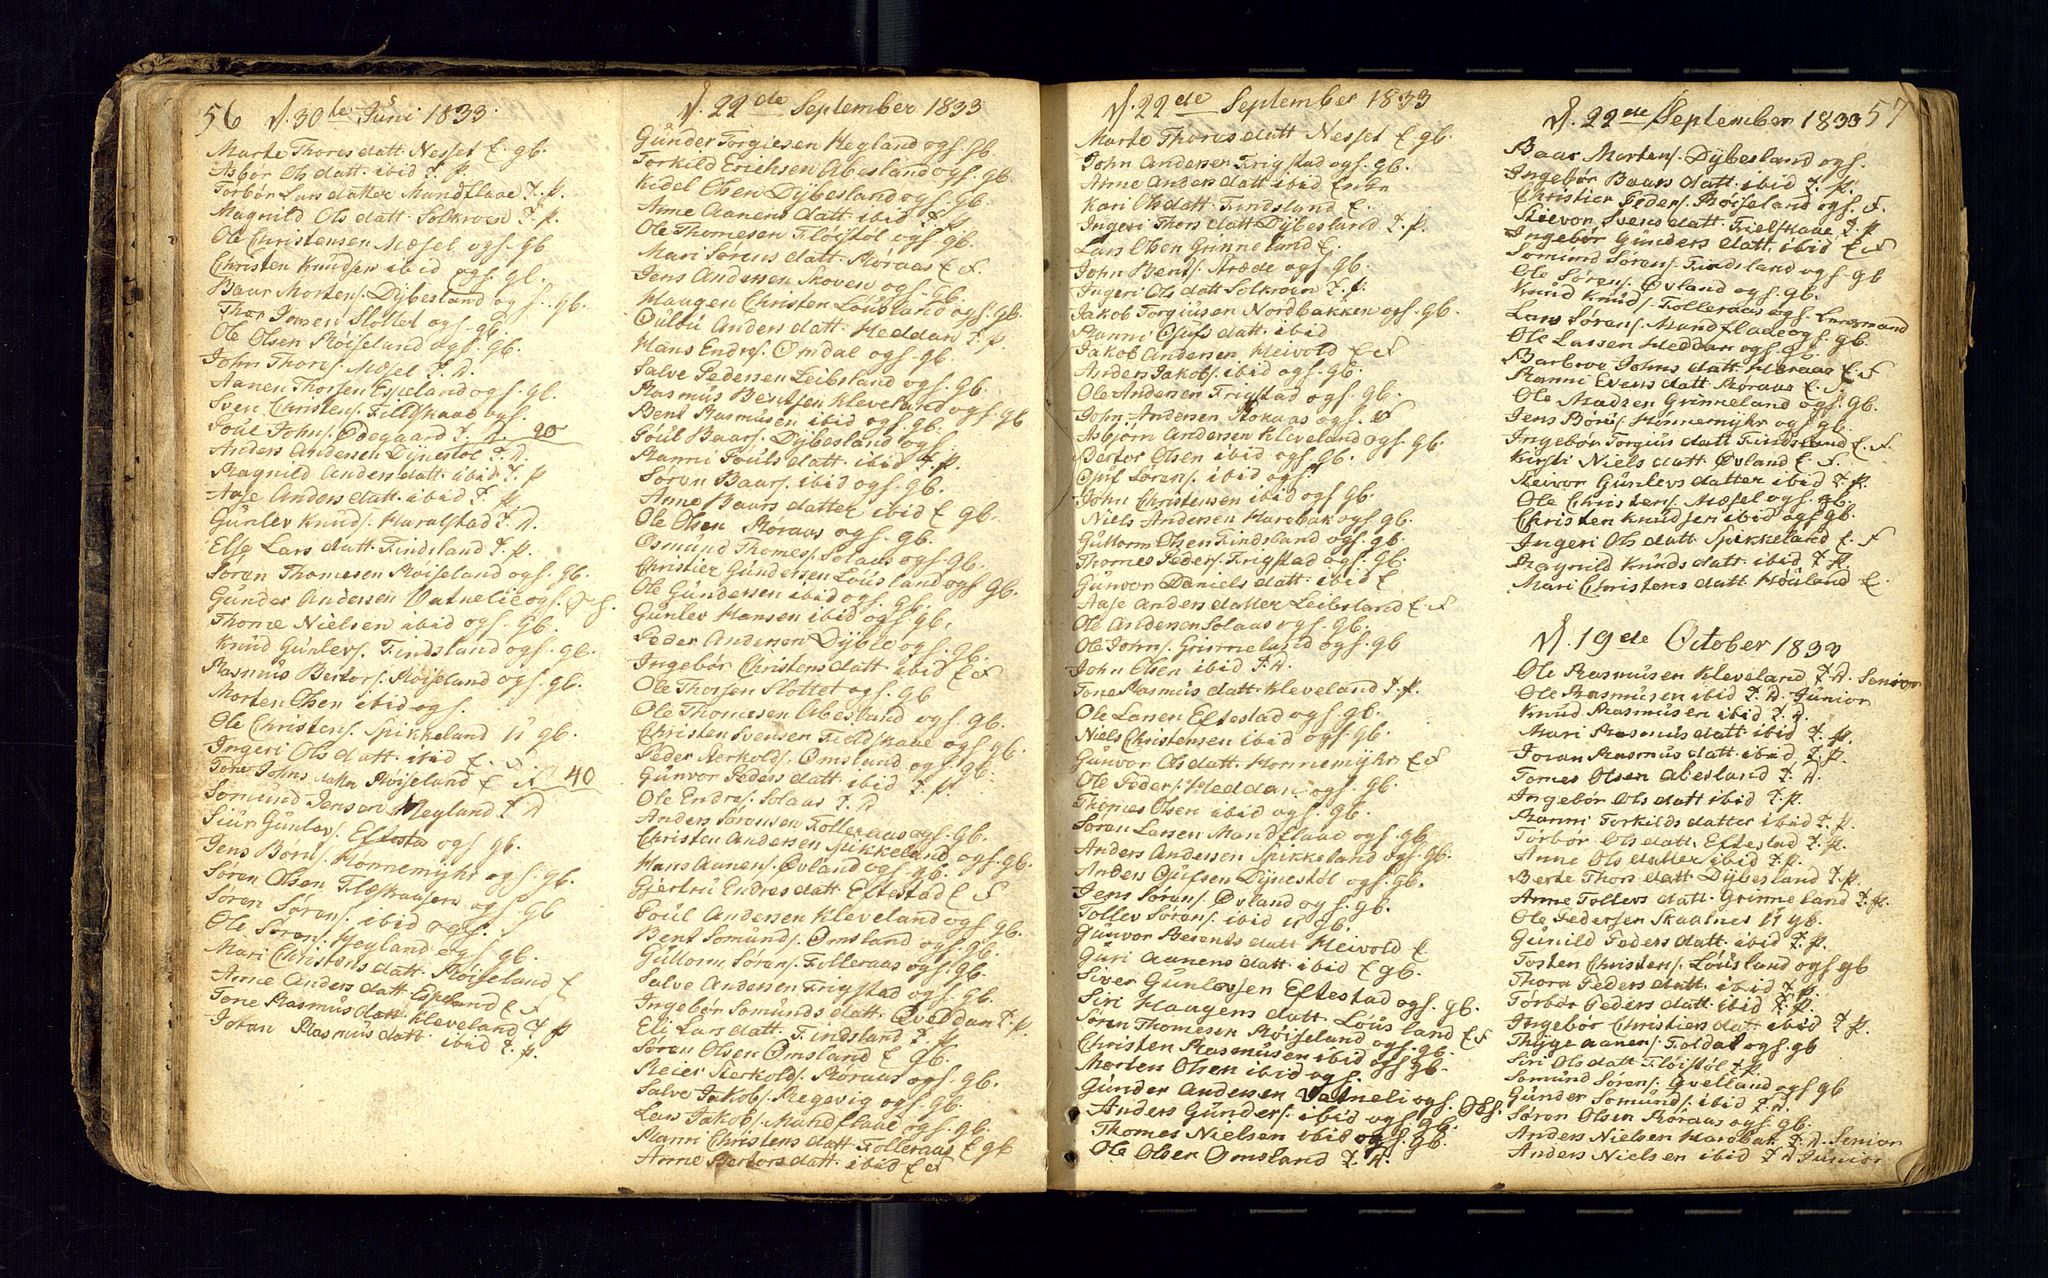 56 d. 30te Juni 1833.
Marte Thores datt. Nesset E. gb.
Asbør Ols datt. ibid T. p.
Torbør Lars datter Mandflaae T. p.
Magnild Ols datt. Solkroen T. p.
Ole Christensen Mæsel og f. gb
Christen Knudsen ibid og f. gb.
Baar Mortens. Dybesland og f. gb.
Thor Jensen Slottet og f. gb.
Ole Olsen Røiseland og f. gb.
John Thores. Mæsel T. D.
Aanen Thorsen Espeland og f. gb.
Sven Christens. Fieldskaae og f.
Poul Johns. Ødegaard T. D. 20
Anders Andersen Dynestøl T. D.
Ragnild Anders datt. ibid T. p
Aase Anders datt. ibid T. p.
Gunlev Knuds. Haralstad T. D.
Else Lars datt. Findsland T. p.
Søren Thomesen Røiseland og f. gb.
Gunder Andersen Vatnelie og f.
Thome Nielsen ibid og f. gb.
Knud Gunlevs. Findsland og f. gb.
Rasmus Bertors. Røiseland og f. gb.
Morten Olsen ibid og f.
Ole Christens. Spikkeland U gb.
Ingeri Ols datt. ibid E. F.
Tone Johns datter Røiseland E F 40
Somund Jensen Hegland T. D
Siur Gunlevs. Eftestad og f gb.
Jens Børus. Honnemyhr og f. gb.
Søren Olsen Flæskaasen og f. gb
Søren Sørens. ibid og f.
Ole Sørens. Hegland og f. gb.
Mari Christens datt. Røiseland E
Anne Anders datt. Espeland E F
Tone Rasmus datt. Kleveland T. p
Joran Rasmus datt. ibid T. p.
d. 22de September 1833
Gunder Torgiesen Hegland og f. gb.
Torkild Erichsen Abesland og f. gb.
Kidel Olsen Dybesland og f. gb.
Anne Aanens datt. ibid T. p
Ole Thomesen Fløistøl og f. gb.
Mari Sørens datt. Røraas E F.
Jens Andersen Skoven og f.
Haagen Christens Lousland og f. gb
Dulbu Anders datt. Heddan T. p.
Hans Endres. Omdal og f. gb
Salve Pedersen Leibsland og f. gb.
Rasmus Bentsen Kleveland og f. gb
Bent Rasmusen ibid og f. gb.
Poul Baars. Dybesland og f.
Ranni Pouls datt. ibid T. p.
Søren Baars. ibid og f. gb.
Anne Baars datter ibid E gb.
Ole Olsen Røraas og f. gb.
Osmund Thomes. Solaas og f. gb.
Christier Gundersen Lousland og f gb.
Ole Gundersen ibid og f. gb.
Gunlev Hansen ibid og f. gb.
Peder Andersen Dyblo og f. gb.
Ingebør Christens datt. ibid E F
Ole Thorsen Slottet og f. gb
Ole Thomesen Abesland og f. gb.
Christen Svensen Fieldskaae og f gb.
Peder Rerkolds. Omsland og f. gb.
Gunvor Peders datt. ibid T. p.
Ole Endres. Solaas T. D
Anders Sørensen Tolleraas og f. gb.
Christen Andersen Spikkeland og f. gb.
Hans Aanens. Øvland og f. gb.
Gjertru Endres datt. Eftestad E F
Poul Andersen Kleveland og f. gb.
Bent Somunds. Omsland og f. gb.
Guttorm Sørens. Tolleraas og f. gb.
Salve Andersen Frigstad og f. gb.
Ingebør Somunds datt. Heddan T. p.
Eli Lars datt. Findsland T. p.
Søren Olsen Omsland E gb.
Reier Rerkolds. Røraas og f. gb.
Salve Jakobs. Regevig og f. gb.
Lars Jakobs. Mandflaae og f. gb.
Ranni Christens datt. Tolleraas E gb
Anne Bertors datt. ibid E F
d. 22de September 1833
Marte Thores datt Nesset E gb.
John Andersen Frigstad og f. gb.
Anne Anders datt. ibid
Kari Ols datt. Findsland E.
Ingeri Thors datt. Dybesland T. p.
Lars Olsen Grinneland E.
John Bents. Stræde og f. gb.
Ingeri Ols datt. Solkroen T. p.
Jakob Torgiusen Nordbakken og f. gb.
Ranni Ojufs datt. ibid
Jakob Andersen Heivold E F
Anders Jakobs. ibid og f. gb.
Ole Andersen Frigstad og f. gb.
John Andersen Rokaas og f. F
Asbjorn Andersen Kleveland og f. gb.
Bertor Olsen ibid og f. gb.
Ojul Sørens. ibid og f.
John Christensen ibid og f. gb.
Niels Andersen Harebak og f. gb.
Guttorm Olsen Findsland og f. gb.
Thomes Peders. Frigstad og f. gb.
Gunvor Daniels datt. ibid E
Aase Anders datter Leibsland E. F
Ole Andersen Solaas og f. gb.
Ole Johns. Grinneland og f. gb
John Olsen ibid T. D.
Tone Rasmus datt. Kleveland T. p.
Ole Larsen Eftestad og f. gb.
Niels Christensen ibid og f. gb.
Gunvor Ols datt. Honnemyhr E F
Ole Peders. Heddan og f. gb.
Thomes Olsen ibid og f. gb.
Søren Larsen Mandflaae og f. gb
Anders Andersen Spikkeland og f. gb.
Anders Ojufsen Dynestøl og f. gb.
Jens Sørens. Øvland og f. gb.
Tollev Sørens. ibid U gb.
Gunvor Berents datt Heivold E
Guri Aanens datt. ibid E gb.
Siver Gunlevsen Eftestad og f. gb.
Siri Haagens datt. Lousland E F
Søren Thomesen Røiseland og f. gb.
Christen Rasmusen ibid og f gb.
Morten Olsen ibid og f.
Gunder Andersen Vatneli og f. gb f.
Anders Gunders. ibid og f. gb.
Thomes Nielsen ibid og f. gb.
Ole Olsen Omsland T. D.
d. 22de September 1833 57
Baar Mortens. Dybesland og f.
Ingebør Baars datt. ibid T. p.
Christier Peders. Røiseland og f. F.
Steevor Svens datt. Fielskaae T. p
Ingebør Gunders datt. ibid E F
Somund Sørens. Findsland og f. gb
Ole Sørens. Øvland og f. gb.
Knud Knuds. Tolleraas og f. Lensmand
Lars Sørens. Mandflaae og f. gb.
Ole Larsen Heddan og f. gb.
Barbroe Johns datt. Haraas E. F
Ranni Evens datt. Røraas E. F.
Ole Madsen Grinneland og f. gb.
Jens Børus. Honnemyhr og f. gb.
Ingebør Torgius datt. Findsland E. F.
Kirsti Niels datt. Øvland E. F.
Steivor Gunlevs datter ibid T. p.
Ole Christens. Mæsel og f. gb.
Christen Knudsen ibid og f gb.
Ingeri Ols datt. Spikkeland E. F
Ragnild Knuds datt. ibid T. p.
Mari Christens datt. Houland E.
d. 19de October 1833
Ole Rasmusen Kleveland T. D. Senior
Ole Rasmusen ibid T. D. Junior
Knud Rasmusen ibid T. D.
Mari Rasmus datt. ibid T. p.
Joran Rasmus datt. ibid, T. p.
Tomes Olsen Abesland T. D.
Ingebør Ols datt. ibid T. p.
Ranni Torkilds datter ibid T. p.
Torbør Ols datt. Eftestad T. p.
Anne Ols datter ibid T. p.
Berte Thors datt. Dybesland T. p.
Anne Tollevs datt. Grinneland T. p.
Ole Pedersen Skaalnes U gb.
Gunild Peders datt. ibid T. p.
Tosten Christens. Lousland og f gb
Thora Peders datt. ibid T. p.
Torbør Peders datt. ibid T. p.
Ingebør Christiers datt. ibid T. p.
Thyge Aanens. Foldal og f. gb
Siri Ols datt. Fløistøl T. p.
Somund Sørens. Qvelland og f gb
Gunder Somunds. ibid T. D.
Søren Olsen Røraas og f. gb.
Anders Nielsen Harebak T. D. Senior
Anders Nielsen ibid T. D Junior